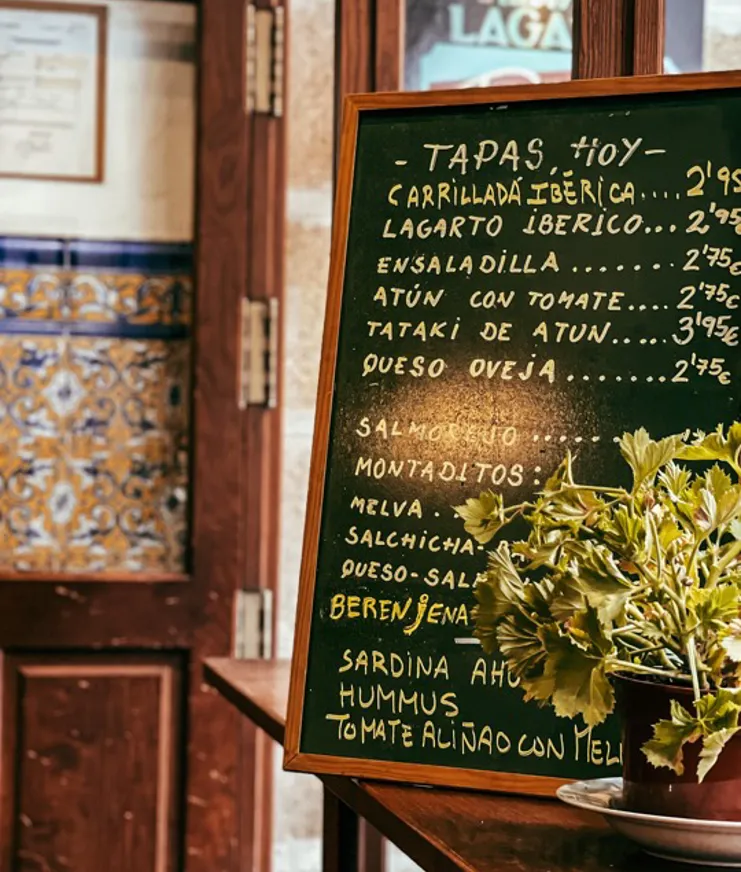 LAGA
- TAPAS HOY -
CARRILLADA IBÉRICA.... 2'95
LAGARTO IBERICO... 2'95€
ENSALADILLA ....... 2'75€
ATÚN CON TOMATE.... 2'75€
TATAKI DE ATUN..... 3'95€
QUESO OVEJA ....... 2'75€
SALMOREJO ......
MONTADITOS:
MELVA .
SALCHICHA-
QUESO-SAL
BERENJENA
SARDINA AHU
HUMMUS
TOMATE ALIÑAO CON MEL